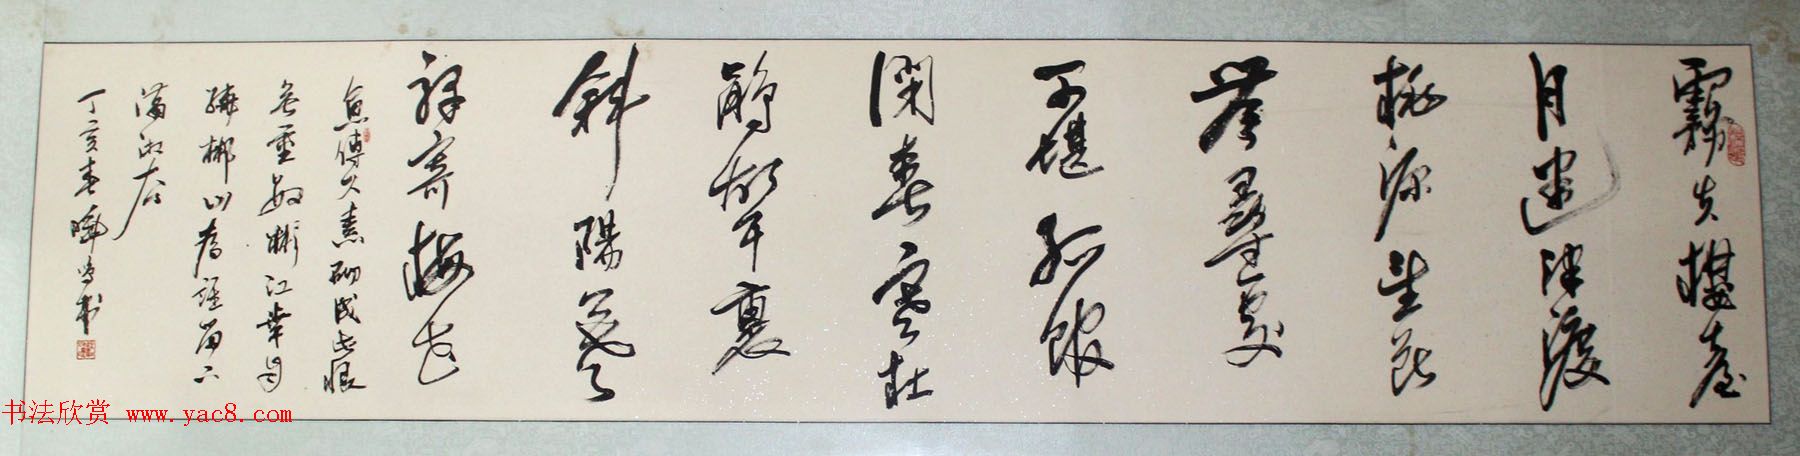 霧失樓臺
月迷津渡
桃源望斷
無尋處
可堪孤館
閉春寒杜
鵑聲裏
斜陽暮
驛寄梅花
魚傳尺素砌成此恨
無重數郴江幸自
繞郴山為誰留下
瀟湘去
丁亥春 鸣书
书法欣赏 www.yac8.com